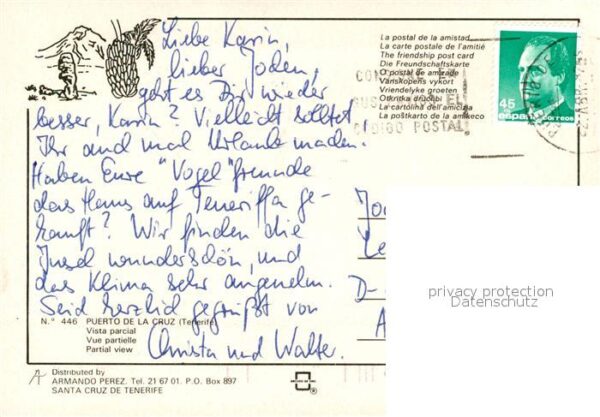 Liebe Karin,
lieber Joden,
geht es Dir wieder
besser, Karin? Vielleicht solltet
Ihr auch mal Urlaub machen.
Haben Eure "Vogel"freunde
das Haus auf Teneriffa ge-
kauft? Wir finden die
Insel wunderschön, und
das Klima sehr angenehm.
Seid herzlich gegrüßt von
Christa und Walter.
La postal de la amistad
La carte postale de l'amitié
The friendship post card
Die Freundschaftskarte
O postal de amizade
Vänskapens vykort
Vriendelyke groeten
Otkritka druzbi
La cartolina dell'amicizia
La poŝtkarto de la amikeco
EL
CODIGO POSTAL
45
españa correos
D-
privacy protection
Datenschutz
N.° 446 PUERTO DE LA CRUZ (Tenerife)
Vista parcial
Vue partielle
Partial view
Distributed by
ARMANDO PEREZ. Tel. 21 67 01. P.O. Box 897
SANTA CRUZ DE TENERIFE